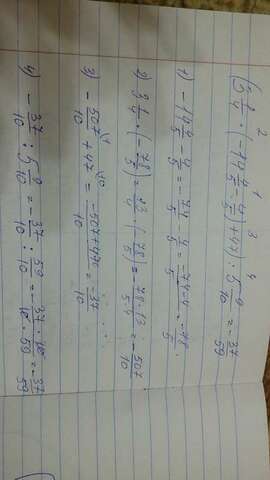 2 1 3 4
(3 1/4 · (-14 4/5 - 4/5) + 47) : 5 9/10 = -37/59
1) -14 4/5 - 4/5 = -74/5 - 4/5 = -74-4/5 = -78/5.
2) 3 1/4 · (-78/5) = 13/4 · (-78/5) = -78·13/5·4 = -507/10
3) -507/10 + 47 = -507+470/10 = -37/10
4) -37/10 : 5 9/10 = -37/10 : 59/10 = -37·10/10·59 = -37/59